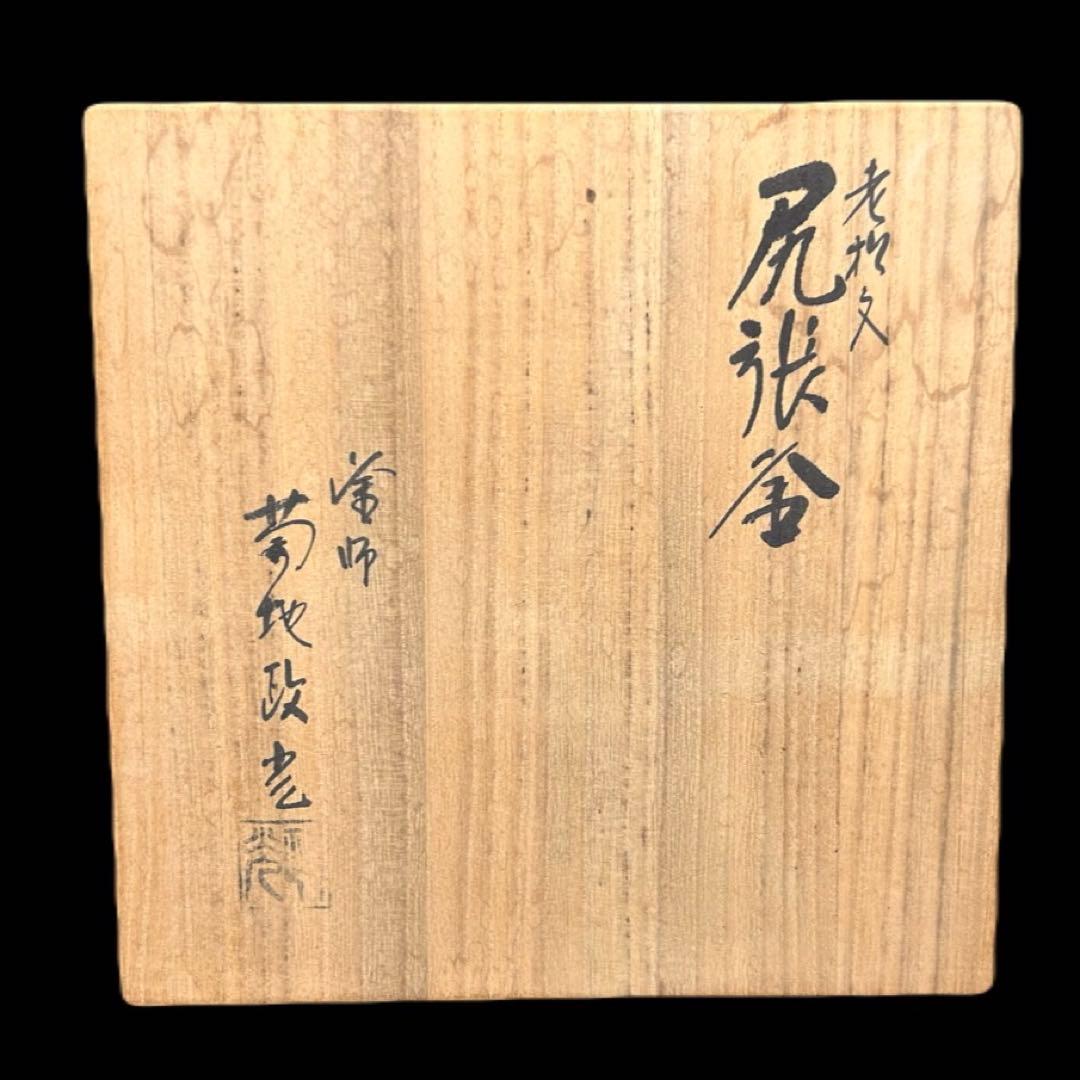 老松文
尻張釜
釜師
菊地政光